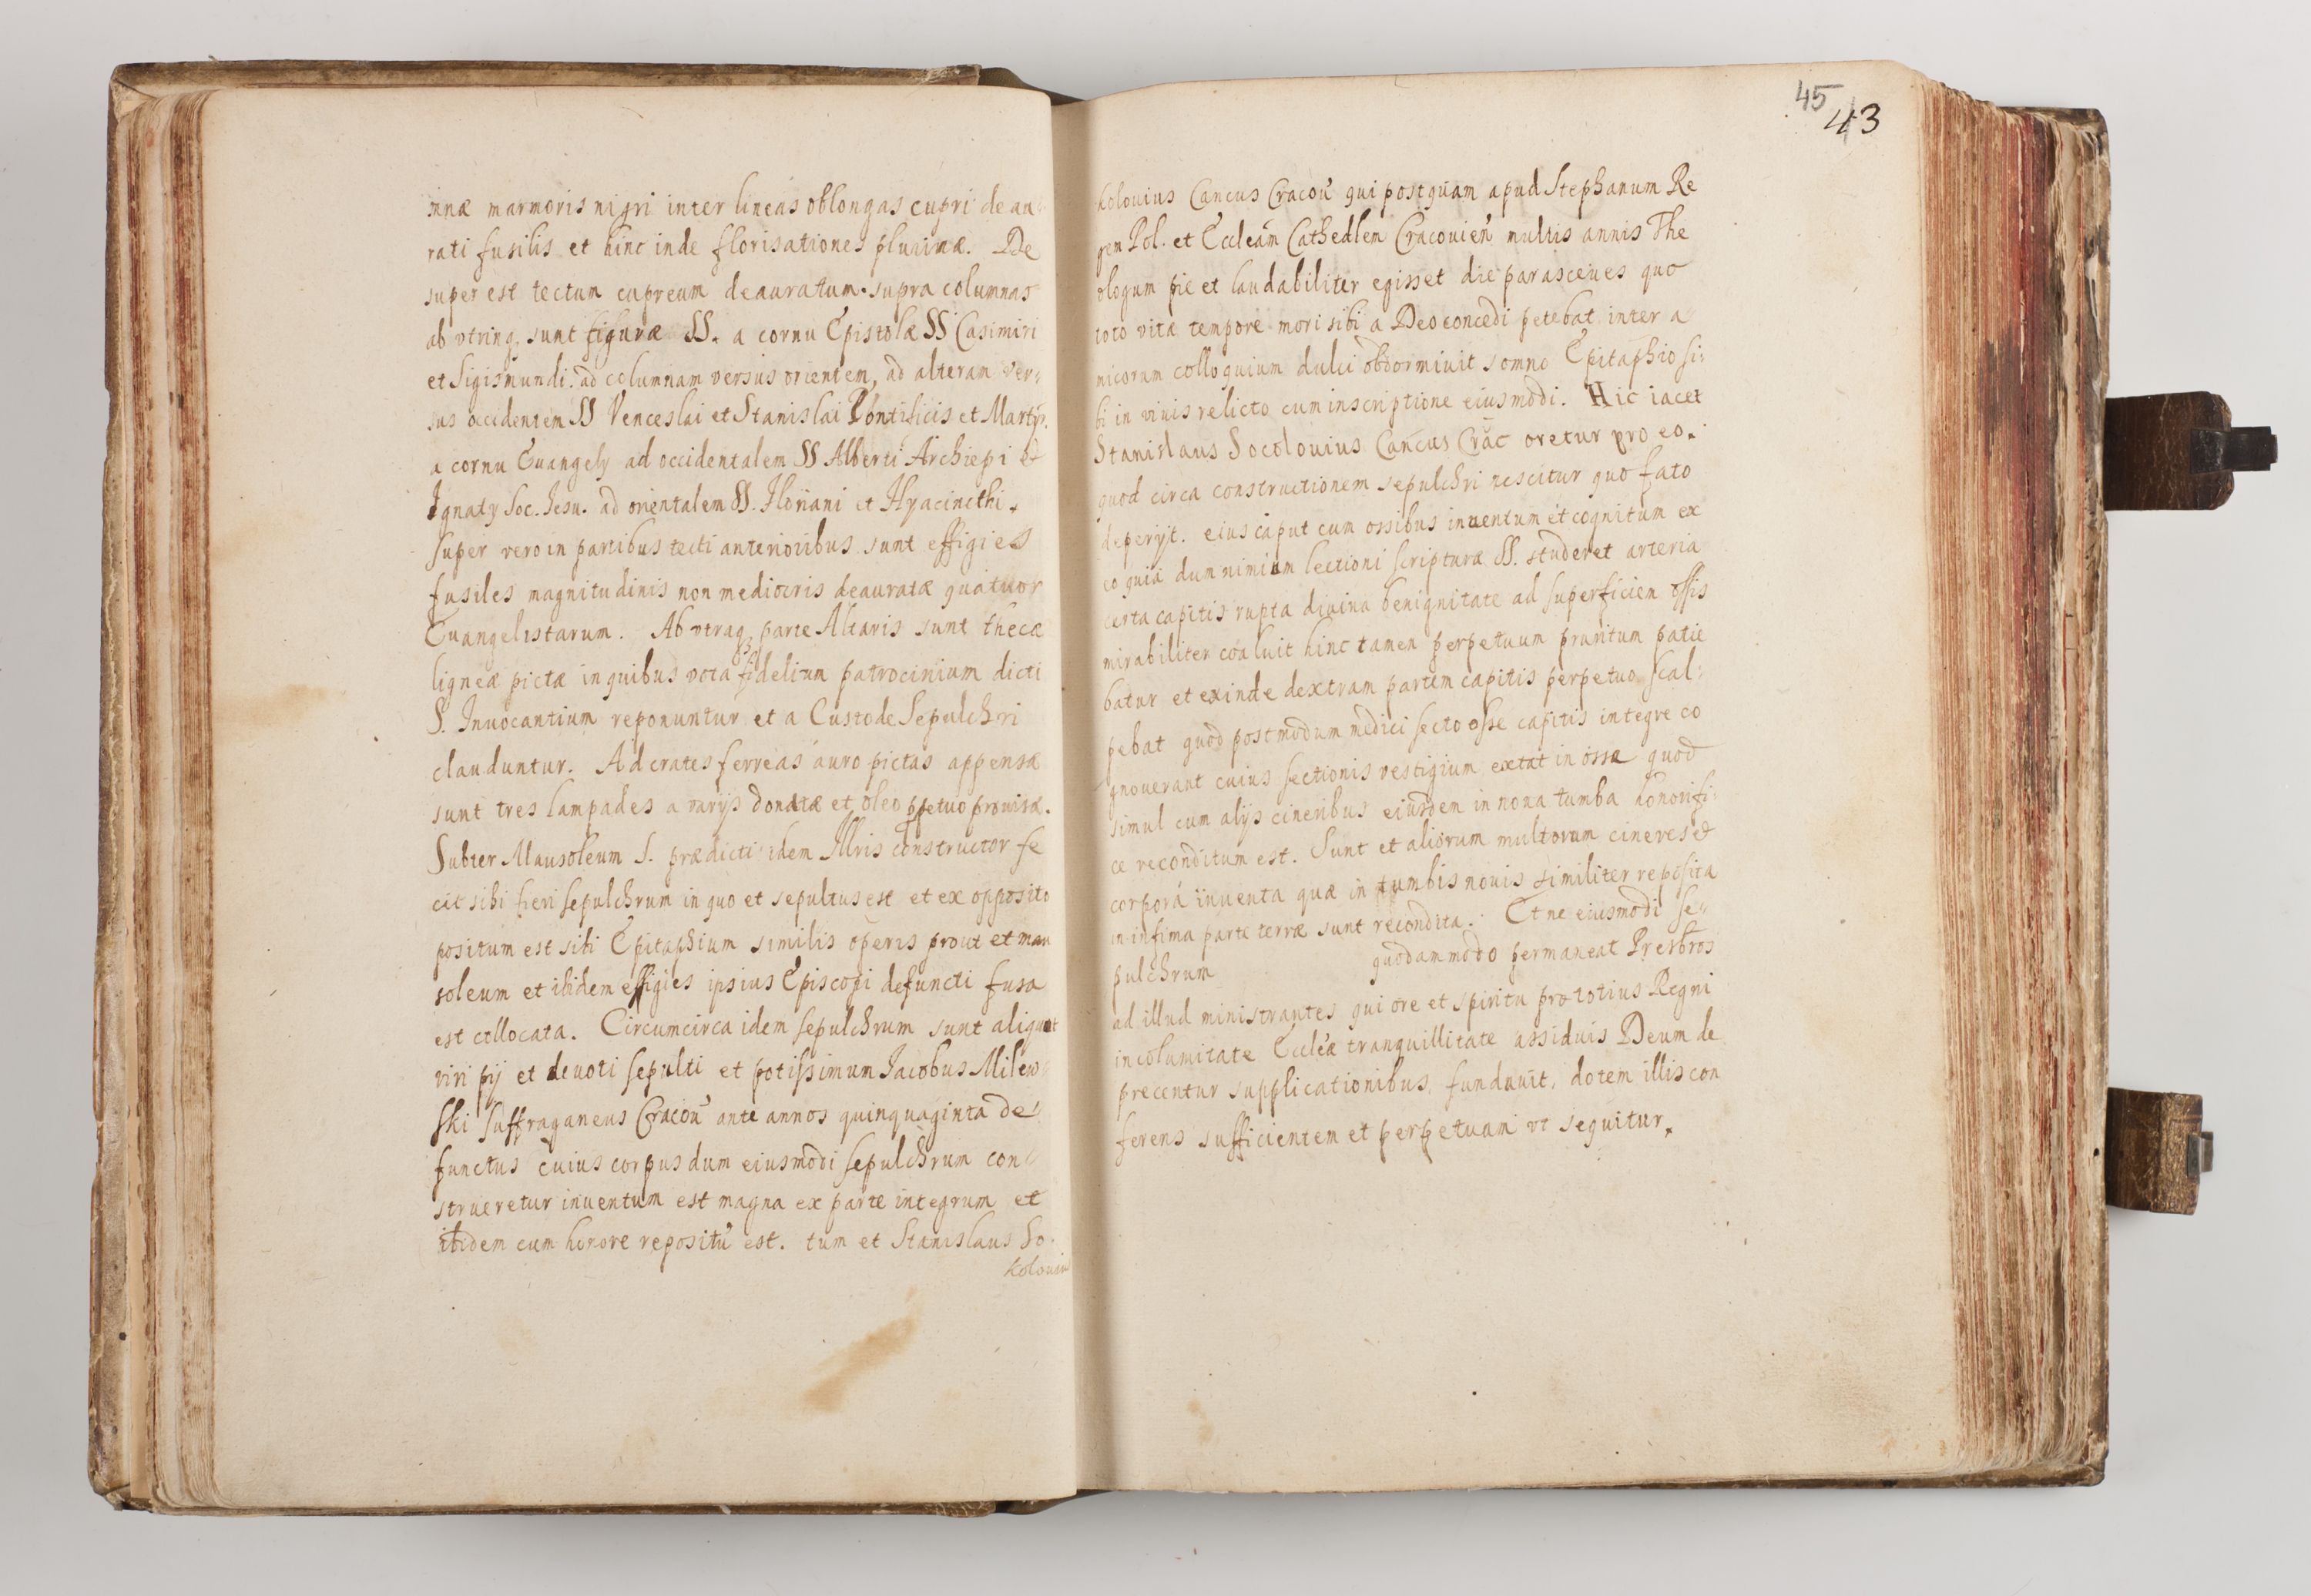 mnæ marmoris nigri inter lineas oblongas cupri deau
rati fusilis et hinc inde florisationes plurimæ. De
super est tectum cupreum deauratum. supra columnas
ab vtrinq. sunt figuræ SS. a cornu Epistolæ SS Casimiri
et Sigismundi. ad columnam versus orientem, ad alteram ver:
sus occidentem SS Venceslai et Stanislai Pontificis et Martyr.
a cornu Euangely ad occidentalem SS Alberti Archiepi et
Ignaty Soc. Jesu. ad orientalem SS. Floriani et Hyacincthi.
Super vero in partibus tecti anterioribus sunt effigies
fusiles magnitudinis non mediocris deauratæ quatuor
Euangelistarum. Ab vtraq. parte Altaris sunt thecæ
ligneæ pictæ in quibus vota fidelium patrocinium dicti
S. Inuocantium reponuntur et a Custode Sepulchri
clauduntur. Ad crates ferreas auro pictas appensæ
sunt tres lampades a varys donatæ et oleo ppetuo prouisæ.
Subter Mausoleum S. prædicti idem Illris constructor fe
cit sibi fieri sepulchrum in quo et sepultus est et ex opposito
positum est sibi Epitaphium similis operis prout et mau
soleum et ibidem effigies ipsius Episcopi defuncti fusa
est collocata. Circumcirca idem sepulchrum sunt aliquot
viri pij et deuoti sepulti et potissimum Jacobus Milew
ski suffraganeus Cracou ante annos quinquaginta de
functus cuius corpus dum eiusmodi sepulchrum con
strueretur inuentum est magna ex parte integrum et
ibidem cum honore repositu est. tum et Stanislaus So.
kolouius
45
43
kolouius Cancus Cracou qui postquam apud Stephanum Re
gem Pol. et Eccleam Cathedlem Cracouien multis annis The
ologum pie et laudabiliter egisset die parasceues quo
toto vitæ tempore mori sibi a Deo concedi petebat inter a
micorum colloquium dulci obdormiuit somno Epitaphio si:
bi in viuis relicto cum inscriptione eiusmodi. Hic iacet
Stanislaus Socolouius Cancus Crac oretur pro eo.
quod circa constructionem sepulchri nescitur quo fato
deperijt. eius caput cum ossibus inuentum et cognitum ex
eo quia dum nimium lectioni scripturæ SS. studeret arteria
certa capitis rupta diuina benignitate ad superficiem ossis
mirabiliter coaluit hinc tamen perpetuum pruritum patie
batur et exinde dextram partem capitis perpetuo scal:
pebat quod postmodum medici secto osse capitis integre co
gnouerant cuius sectionis vestigium extat in osse quod
simul cum alijs cineribus eiusdem in noua tumba honorifi:
ce reconditum est. Sunt et aliorum multorum cineres et
corpora inuenta quæ in tumbis nouis similiter reposita
in infima parte terræ sunt recondita. Et ne eiusmodi se
pulchrum quodammodo permaneat Presbros
ad illud ministrantes qui ore et spiritu pro totius Regni
incolumitate Eccleæ tranquillitate assiduis Deum de
precentur supplicationibus, fundauit, dotem illis con
ferens sufficientem et perpetuam vt sequitur.